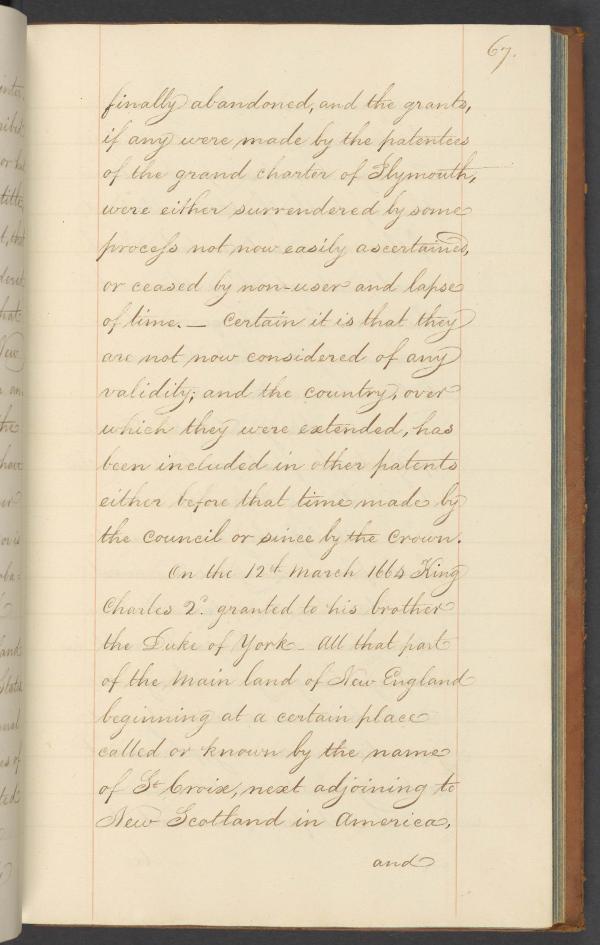 67.
finally abandoned, and the grants,
if any were made by the patentees
of the grand charter of Plymouth,
were either surrendered by some
process not now easily ascertained,
or ceased by non-user and lapse
of time. — Certain it is that they
are not now considered of any
validity; and the country, over
which they were extended, has
been included in other patents
either before that time made by
the Council or since by the Crown.
On the 12th March 1664 King
Charles 2d. granted to his brother
the Duke of York – All that part
of the Main land of New England
beginning at a certain place
called or known by the name
of St Croix, next adjoining to
New Scotland in America,
and